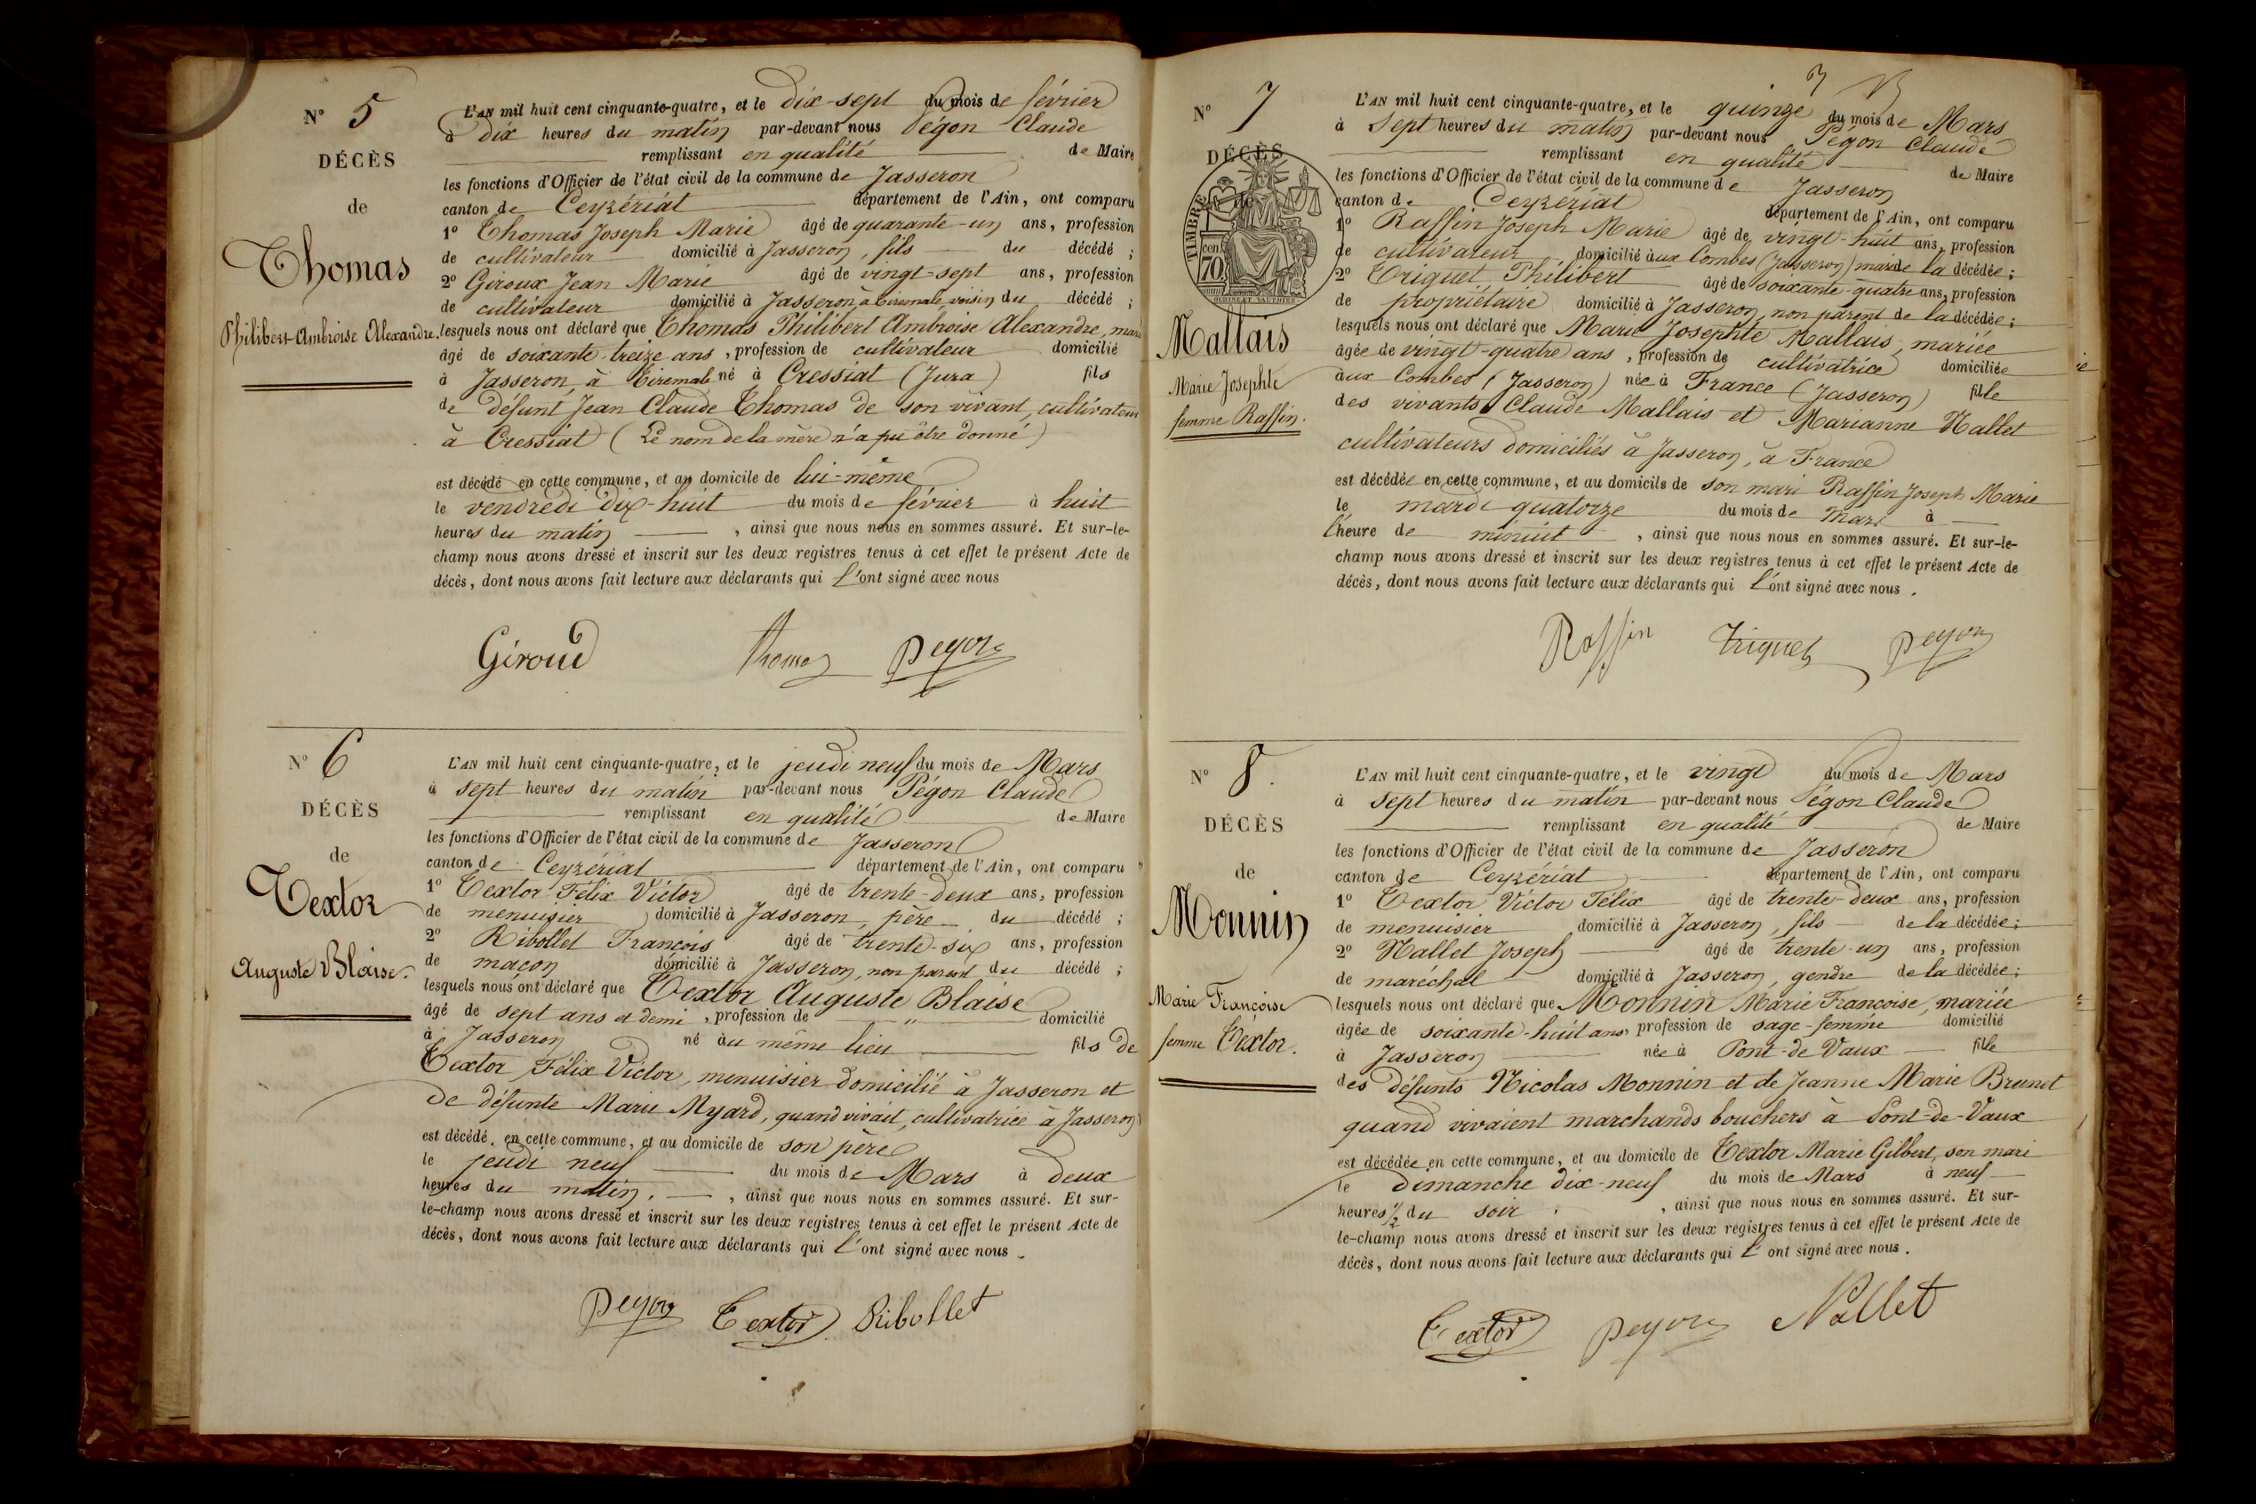 N° 5
DÉCÈS
de
Thomas
Philibert Ambroise Alexandre.
L'AN mil huit cent cinquante-quatre, et le dix-sept du mois de février
à dix heures du matin par-devant nous Pégon Claude
remplissant en qualité de Maire
les fonctions d'Officier de l'état civil de la commune de Jasseron
canton de Ceyzériat département de l'Ain, ont comparu
1° Thomas Joseph Marie âgé de quarante-un ans, profession
de cultivateur domicilié à Jasseron, fils du décédé ;
2° Giroux Jean Marie âgé de vingt-sept ans, profession
de cultivateur domicilié à Jasseron, à Tiremale voisin du décédé ;
lesquels nous ont déclaré que Thomas Philibert Ambroise Alexandre, marié
âgé de soixante-treize ans, profession de cultivateur domicilié
à Jasseron, à Tiremale né à Cressiat (Jura) fils
de défunt Jean Claude Thomas de son vivant, cultivateur
à Cressiat (Le nom de la mère n'a pu être donné)
est décédé en cette commune, et au domicile de lui-même
le vendredi dix-huit du mois de février à huit
heures du matin, ainsi que nous nous en sommes assuré. Et sur-le-
champ nous avons dressé et inscrit sur les deux registres tenus à cet effet le présent Acte de
décès, dont nous avons fait lecture aux déclarants qui l'ont signé avec nous
Giroud Thomas Pegon
N° 6
DÉCÈS
de
Textor
Auguste Blaise.
L'AN mil huit cent cinquante-quatre, et le jeudi neuf du mois de Mars
à sept heures du matin par-devant nous Pégon Claude
remplissant en qualité de Maire
les fonctions d'Officier de l'état civil de la commune de Jasseron
canton de Ceyzériat département de l'Ain, ont comparu
1° Textor Félix Victor âgé de trente-deux ans, profession
de menuisier domicilié à Jasseron, père du décédé ;
2° Ribollet François âgé de trente-six ans, profession
de maçon domicilié à Jasseron, non parent du décédé ;
lesquels nous ont déclaré que Textor Auguste Blaise
âgé de sept ans et demi, profession de " domicilié
à Jasseron né au même lieu fils de
Textor Félix Victor, menuisier domicilié à Jasseron et
de défunte Marie Myard, quand vivait, cultivatrice à Jasseron
est décédé, en cette commune, et au domicile de son père
le jeudi neuf du mois de Mars à deux
heures du matin, ainsi que nous nous en sommes assuré. Et sur-
le-champ nous avons dressé et inscrit sur les deux registres tenus à cet effet le présent Acte de
décès, dont nous avons fait lecture aux déclarants qui l'ont signé avec nous.
Pegon Textor Ribollet
7
N° 7
DÉCÈS
de
TIMBRE
70 cen
Mallais
Marie Josephte
femme Raffin.
L'AN mil huit cent cinquante-quatre, et le quinze du mois de Mars
à sept heures du matin par-devant nous Pégon Claude
remplissant en qualité de Maire
les fonctions d'Officier de l'état civil de la commune de Jasseron
canton de Ceyzériat département de l'Ain, ont comparu
1° Raffin Joseph Marie âgé de vingt-huit ans, profession
de cultivateur domicilié aux Combes (Jasseron) mari de la décédée ;
2° Triquet Philibert âgé de soixante-quatre ans, profession
de propriétaire domicilié à Jasseron, non parent de la décédée ;
lesquels nous ont déclaré que Marie Josephte Mallais, mariée
âgée de vingt-quatre ans, profession de cultivatrice domiciliée
aux Combes (Jasseron) née à France (Jasseron) fille
des vivants Claude Mallais et Marianne Nallet
cultivateurs domiciliés à Jasseron, à France
est décédée en cette commune, et au domicile de son mari Raffin Joseph Marie
le mardi quatorze du mois de Mars à
l'heure de minuit, ainsi que nous nous en sommes assuré. Et sur-le-
champ nous avons dressé et inscrit sur les deux registres tenus à cet effet le présent Acte de
décès, dont nous avons fait lecture aux déclarants qui l'ont signé avec nous.
Raffin Triquet Pegon
N° 8.
DÉCÈS
de
Monnin
Marie Françoise
femme Textor.
L'AN mil huit cent cinquante-quatre, et le vingt du mois de Mars
à sept heures du matin par-devant nous Pégon Claude
remplissant en qualité de Maire
les fonctions d'Officier de l'état civil de la commune de Jasseron
canton de Ceyzériat département de l'Ain, ont comparu
1° Textor Victor Félix âgé de trente-deux ans, profession
de menuisier domicilié à Jasseron, fils de la décédée ;
2° Nallet Joseph âgé de trente-un ans, profession
de maréchal domicilié à Jasseron, gendre de la décédée ;
lesquels nous ont déclaré que Monnin Marie Françoise, mariée
âgée de soixante-huit ans, profession de sage-femme domicilié
à Jasseron née à Pont-de-Vaux fille
des défunts Nicolas Monnin et de Jeanne Marie Brunet
quand vivaient marchands bouchers à Pont-de-Vaux
est décédée en cette commune, et au domicile de Textor Marie Gilbert, son mari
le dimanche dix-neuf du mois de Mars à neuf
heures 1/2 du soir, ainsi que nous nous en sommes assuré. Et sur-
le-champ nous avons dressé et inscrit sur les deux registres tenus à cet effet le présent Acte de
décès, dont nous avons fait lecture aux déclarants qui l'ont signé avec nous.
Textor Pegon Nallet